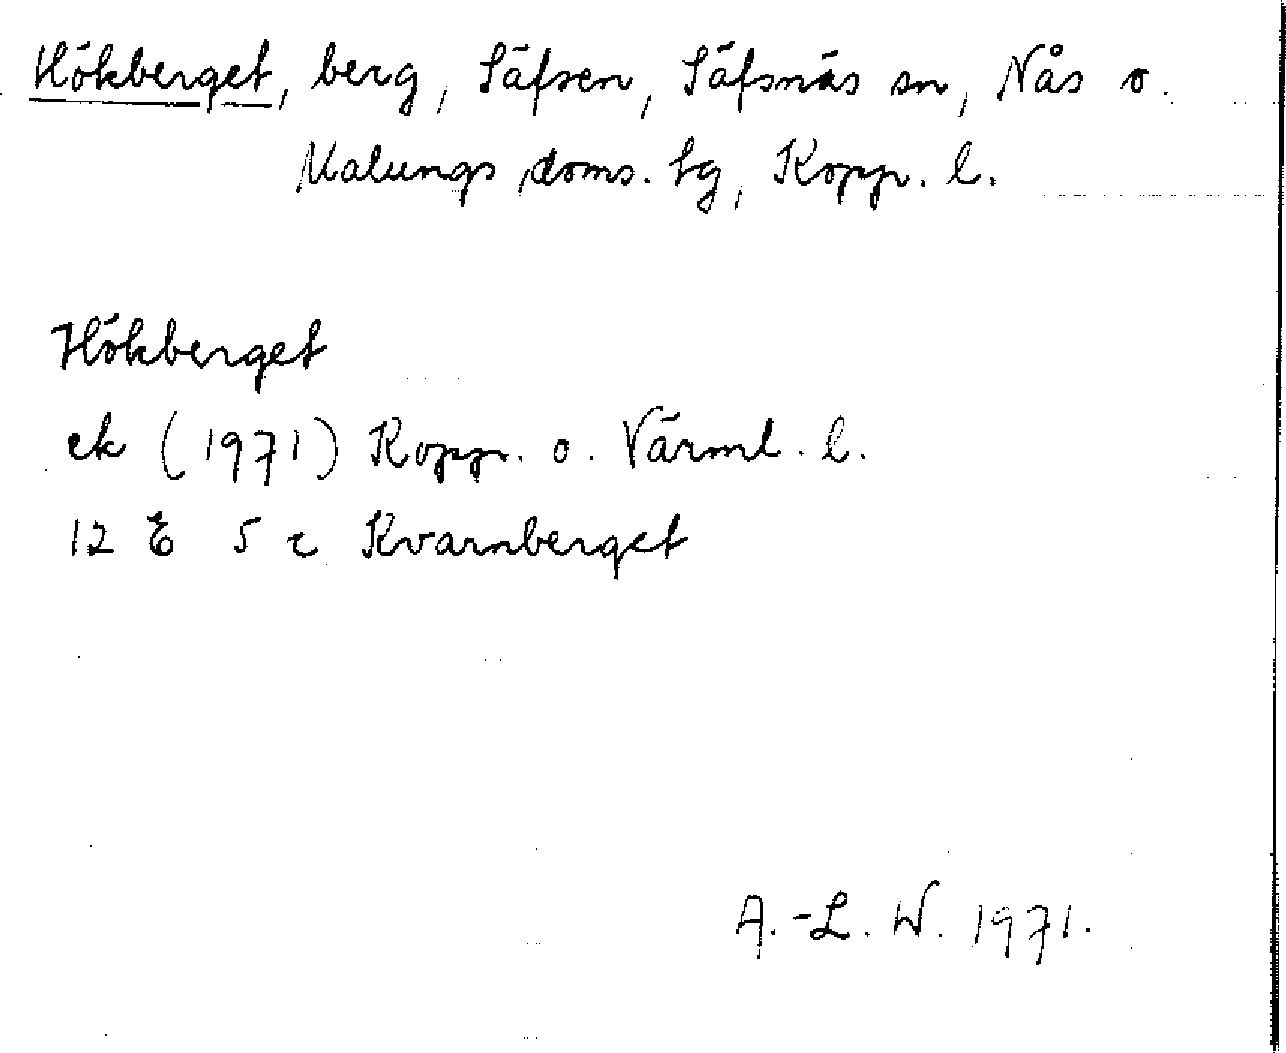 Hökberget, berg, Säfsen, Säfsnäs sn, Nås o.
Malungs doms. tg, Kopp. l.
Hökberget
ek (1971) Kopp. o. Värml. l.
12 E 5 c Kvarnberget
A.-L. W. 1971.